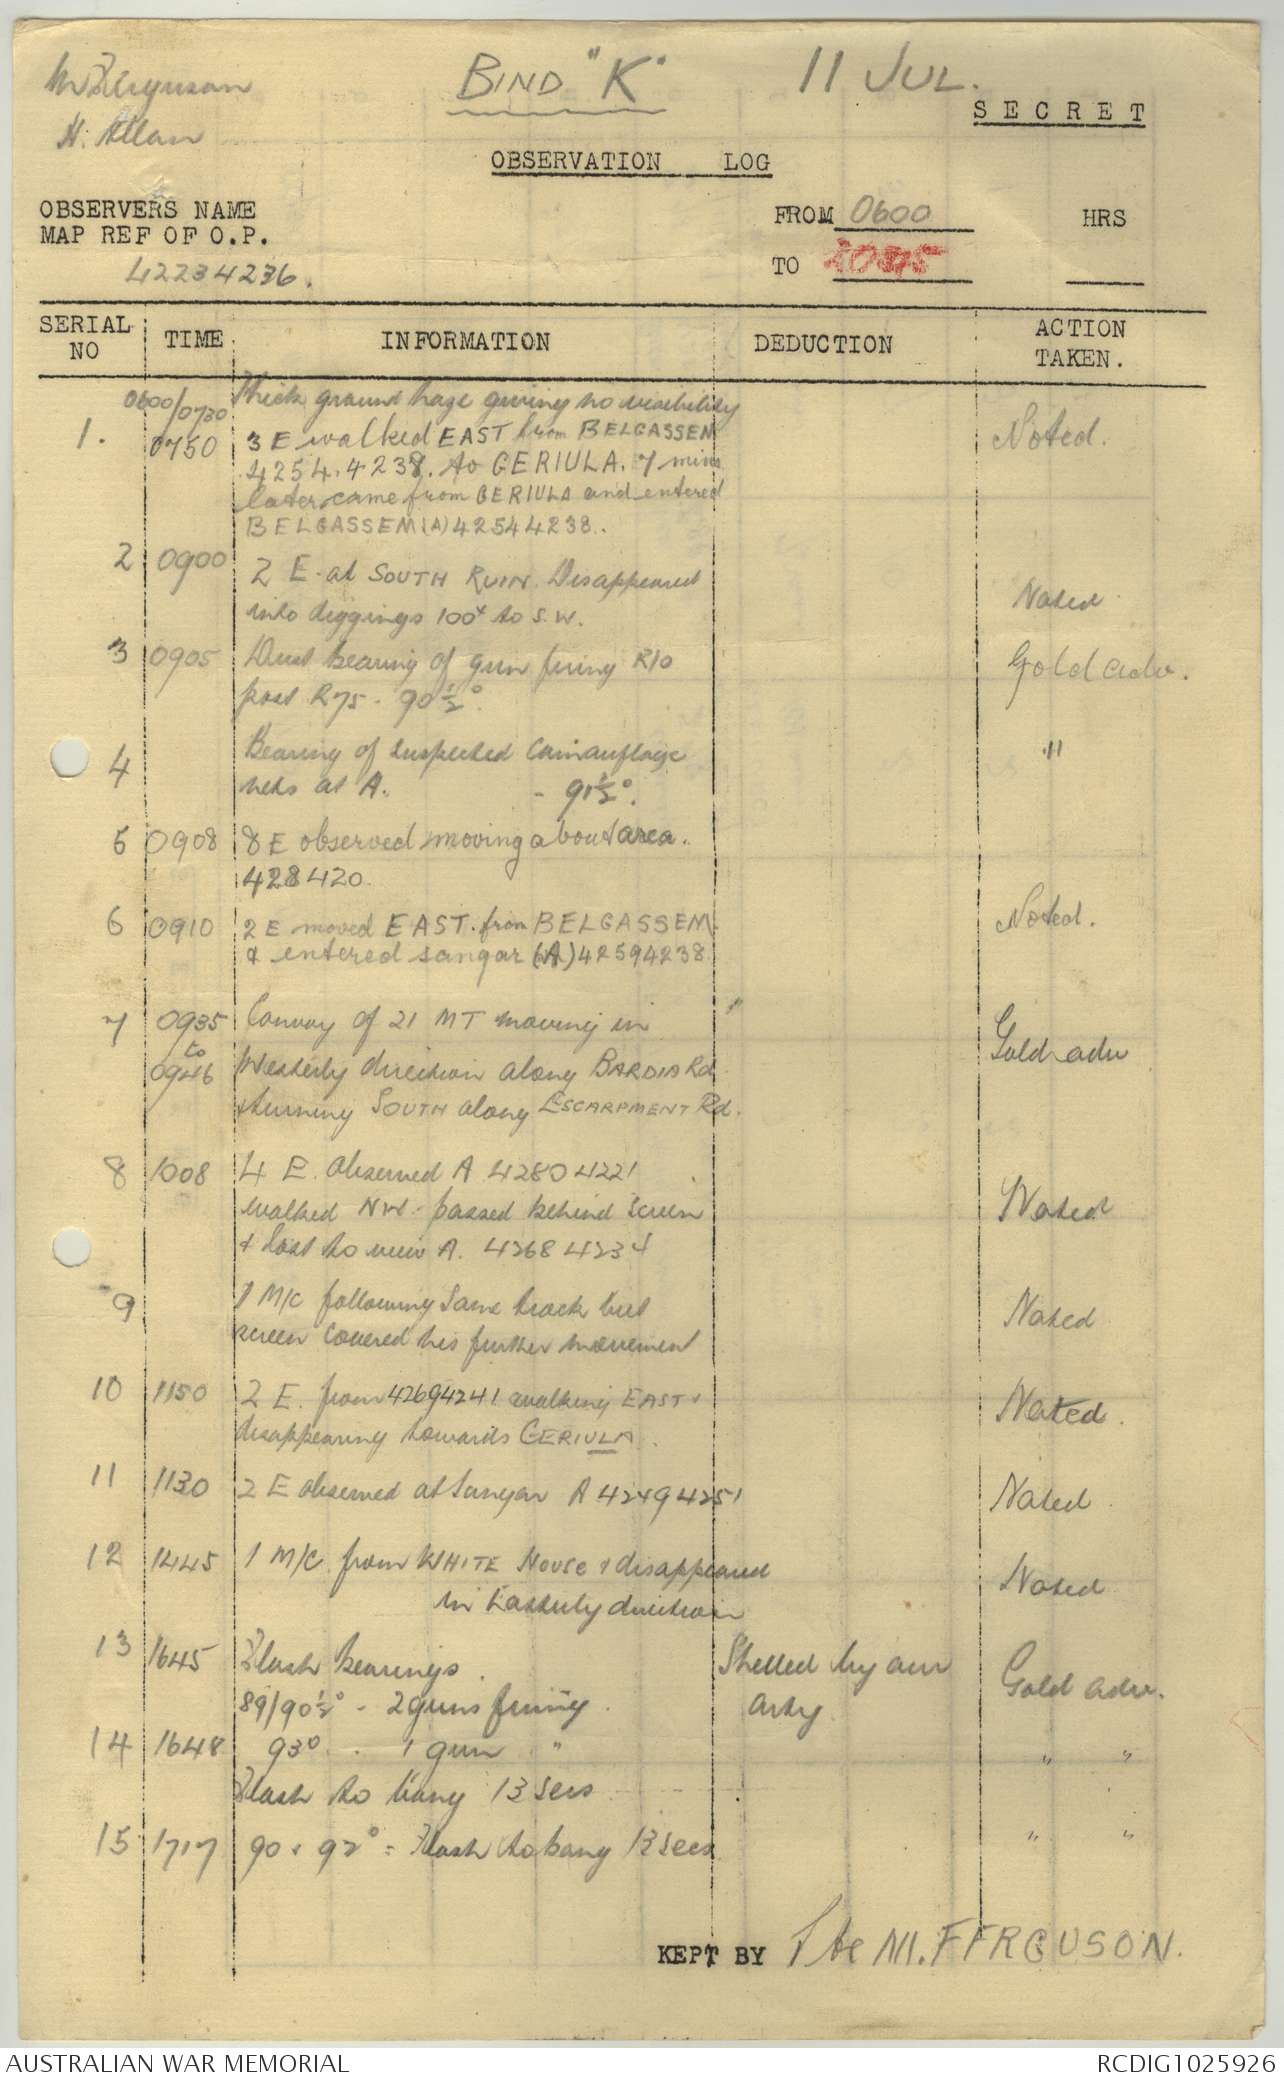 M Ferguson
H. Allan
BIND "K"
11 JUL.
SECRET
OBSERVATION LOG
OBSERVERS NAME
MAP REF OF O.P.
42234236.
FROM 0600 HRS
TO
SERIAL NO TIME INFORMATION DEDUCTION ACTION TAKEN.
0600/0730 Thick ground haze giving no visibility
1. 0750 3 E walked EAST from BELGASSEM Noted.
4254.4238. to GERIULA. 7 mins
later came from GERIULA and entered
BELGASSEM (A) 42544238.
2 0900 2 E. at SOUTH RUIN. Disappeared
into diggings 100x to S.W. Noted
3 0905 Dust bearing of gun firing R10 Gold adv.
post R75 - 90½°.
4 Bearing of suspected Camouflage "
nets at A. - 91½°.
5 0908 8 E observed moving about area.
428420.
6 0910 2 E moved EAST. from BELGASSEM Noted.
& entered sangar (A) 42594238.
7 0935 Convoy of 21 MT moving in "
to
0946 Westerly direction along BARDIA Rd Gold adv
turning SOUTH along ESCARPMENT Rd.
8 1008 4 E. observed A 42804221
walked NW. passed behind screen Noted
& lost to view A. 42684234
9 1 M/C following same track but Noted
screen covered his further movement
10 1150 2 E. from 42694241 walking EAST & Noted.
disappearing towards GERIULA.
11 1130 2 E observed at Sangar A 42494251 Noted
12 1445 1 M/C. from WHITE HOUSE & disappeared Noted
in Easterly direction
13 1645 Flash bearings. Shelled by our Gold adv.
89/90½° - 2 guns firing. arty
14 1648 93° - 1 gun " " "
Flash to bang 13 secs
15 1717 90 & 92° = Flash to bang 13 secs " "
KEPT BY Pte M. FERGUSON.
AUSTRALIAN WAR MEMORIAL RCDIG1025926